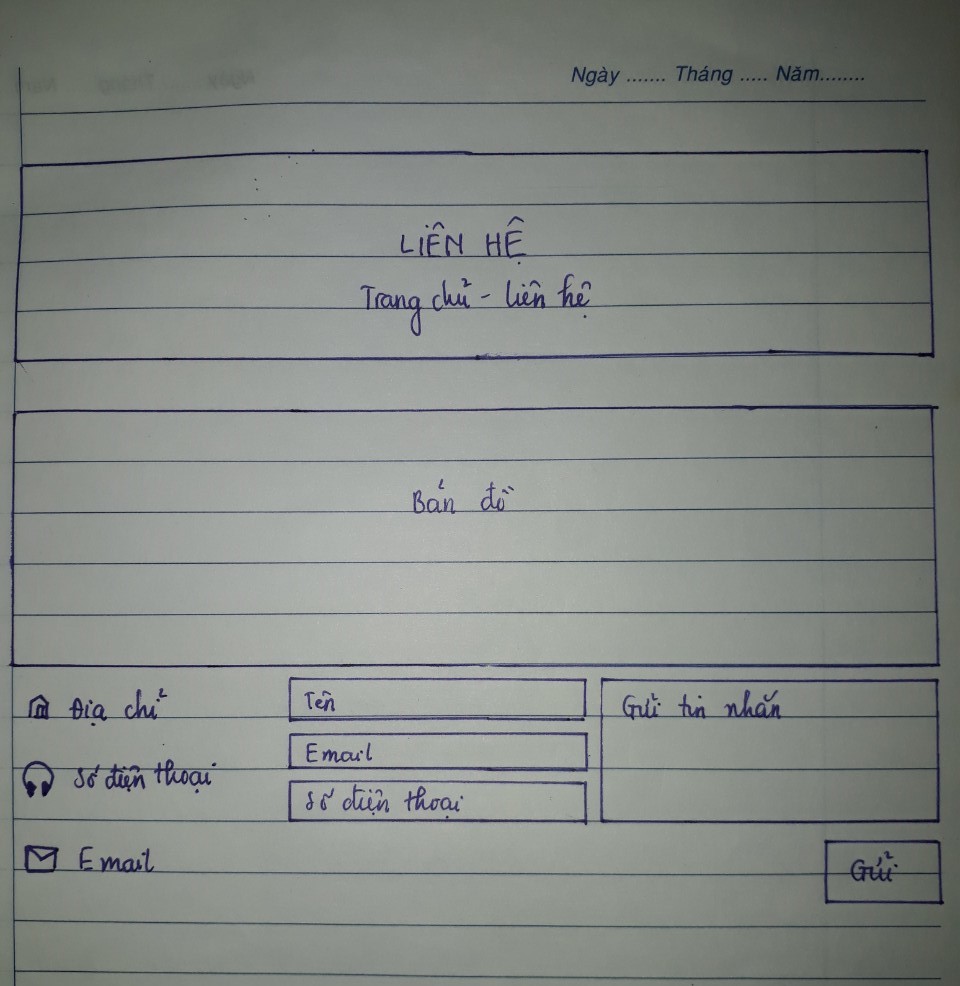 Ngày ....... Tháng ..... Năm........
LIÊN HỆ
Trang chủ - liên hệ
Bản đồ
Địa chỉ
Số điện thoại
Email
Tên
Email
Số điện thoại
Gửi tin nhắn
Gửi